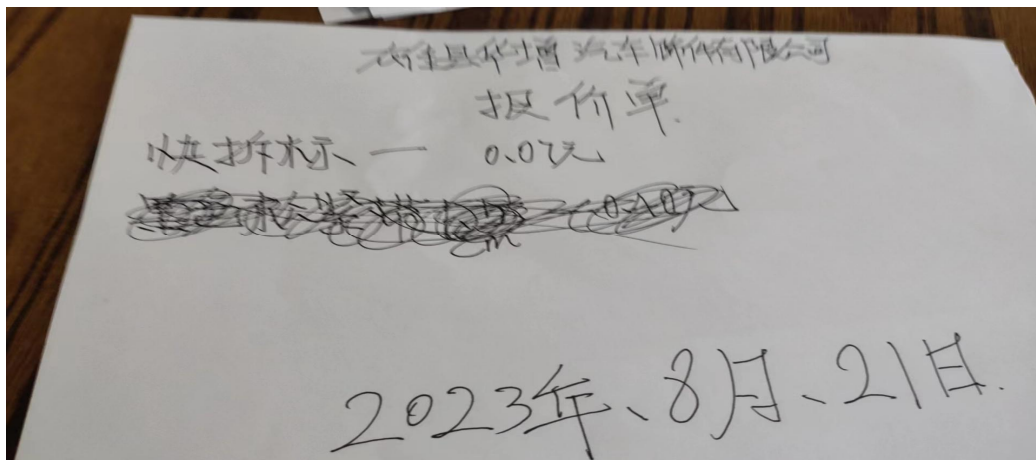 华增汽车饰件有限公司
报价单.
快拆标一 0.07元
2023年、8月、21日.